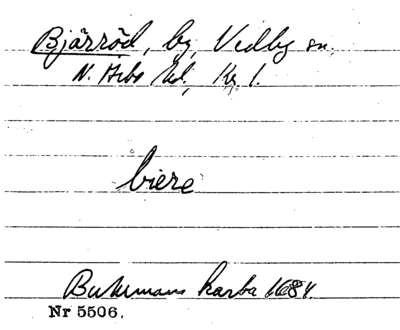 Bjärröd, by, Vedby sn,
N. Åsbo hd, Kr. l.
biere
Buhrmans karta 1684.
Nr 5506.